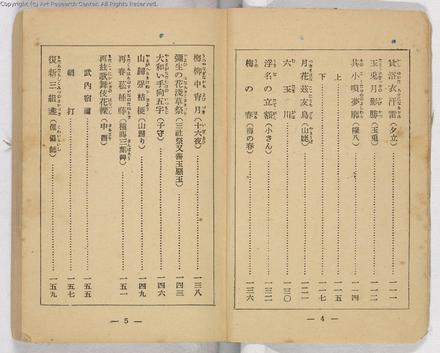 (c) Art Research Center, All Rights Reserved.
賤浴衣汗雷(夕立)………一一一
玉兎月影勝(玉兎)………一一二
其小唄夢廓(權八)………一一四
上………一一五
下………一一七
月花茲友鳥(山姥)………一二一
六玉川………一三〇
浮名の立額(小さん)………一三二
梅の春(梅の春)………一三六
— 4 —
梅柳中宵月(十六夜)………一三八
彌生の花淺草祭(三社祭又善玉惡玉)………一四三
大和い手向五字(子守)………一四六
山歸强桔梗(山歸り)………一四九
再春菘種蒔(種蒔三番叟)………一五一
再茲歌舞伎花轢(中酉)
武内宿禰………一五五
網打………一五七
復新三組盞(傀儡師)………一五九
— 5 —